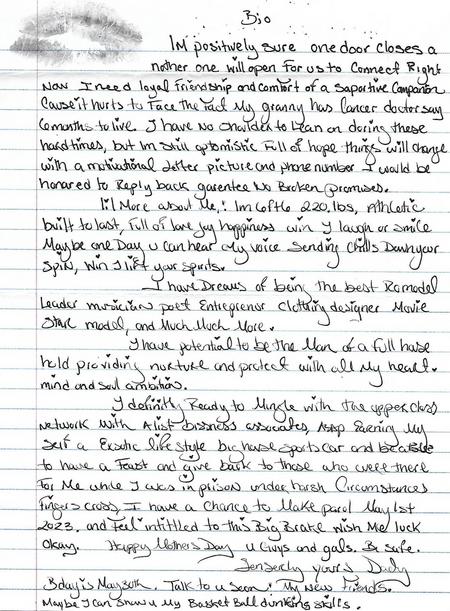 Bio
Im positively sure one door closes a
nother one will open For us to Connect Right
Now I need loyal Friendship and comfort of a Saportive Companion
Cause it hurts to Face the Fact My granny has Cancer doctor say
6 months to live. I have no Shoulder to Lean on doring these
hard times, but Im still optomistic Full of hope things will change
with a motivational Letter picture and phone number I would be
honared to Reply back garentee No Broken promises.
lil More about Me,: Im 6ft6 220.lbs, Athletic
built to last, Full of love Joy happiness win I laugh or smile
Maybe one Day u Can hear My voice Sending Chills Down your
Spin, Win I lift your Spirits.
I have Dreams of being the best Romodel
Leader musician poet Entreprenor Clothing designer Movie
Star model, and Much Much More.
I have potential to be the Man of a full house
hold providing nurture and protect with all My heart.
mind and soul ambition.
I definitly Ready to Mingle with the upper class
Network with A list bissness associates, Asap Earning My
Self a Exsotic life style big house Sports car and be able
to have a Feast and give back to those who weet there
For Me while I was in prison under harsh Circumstances
Fingers cross, I have a Chance to Make parol May 1st
2023. and Feel intittled to this Big Brake wish Me luck
Okay. Happy Mothers Day u Guys and gals. Be safe.
Senserly yours Dady
Bday is May 8th. Talk to u Soon! My New Friends.
Maybe I Can Show u My Basket Ball dunking skills.